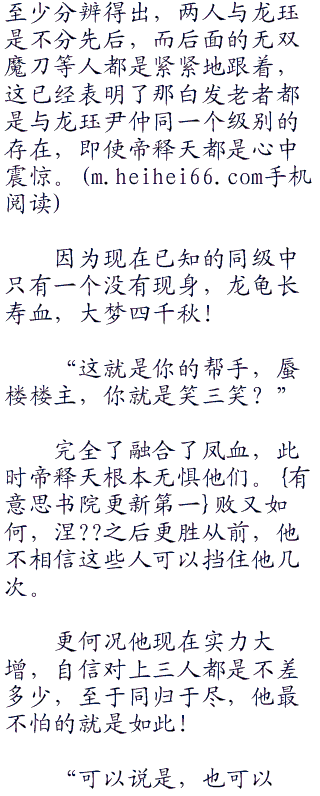 至少分辨得出，两人与龙珏
是不分先后，而后面的无双
魔刀等人都是紧紧地跟着，
这已经表明了那白发老者都
是与龙珏尹仲同一个级别的
存在，即使帝释天都是心中
震惊。(m.heihei66.com手机
阅读)
因为现在已知的同级中
只有一个没有现身，龙龟长
寿血，大梦四千秋！
“这就是你的帮手，蜃
楼楼主，你就是笑三笑？”
完全了融合了凤血，此
时帝释天根本无惧他们。{有
意思书院更新第一}败又如
何，涅??之后更胜从前，他
不相信这些人可以挡住他几
次。
更何况他现在实力大
增，自信对上三人都是不差
多少，至于同归于尽，他最
不怕的就是如此！
“可以说是，也可以